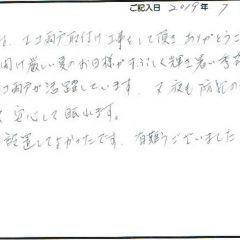 ご記入日 2019年 7
エコ雨戸取付け工事をして頂きありがとうご
向け厳しい夏のお日様がまぶしく輝き暑い季節
雨戸が活躍しています。又夜も防犯の
安心して眠れます。
設置してよかったです。有難うございました